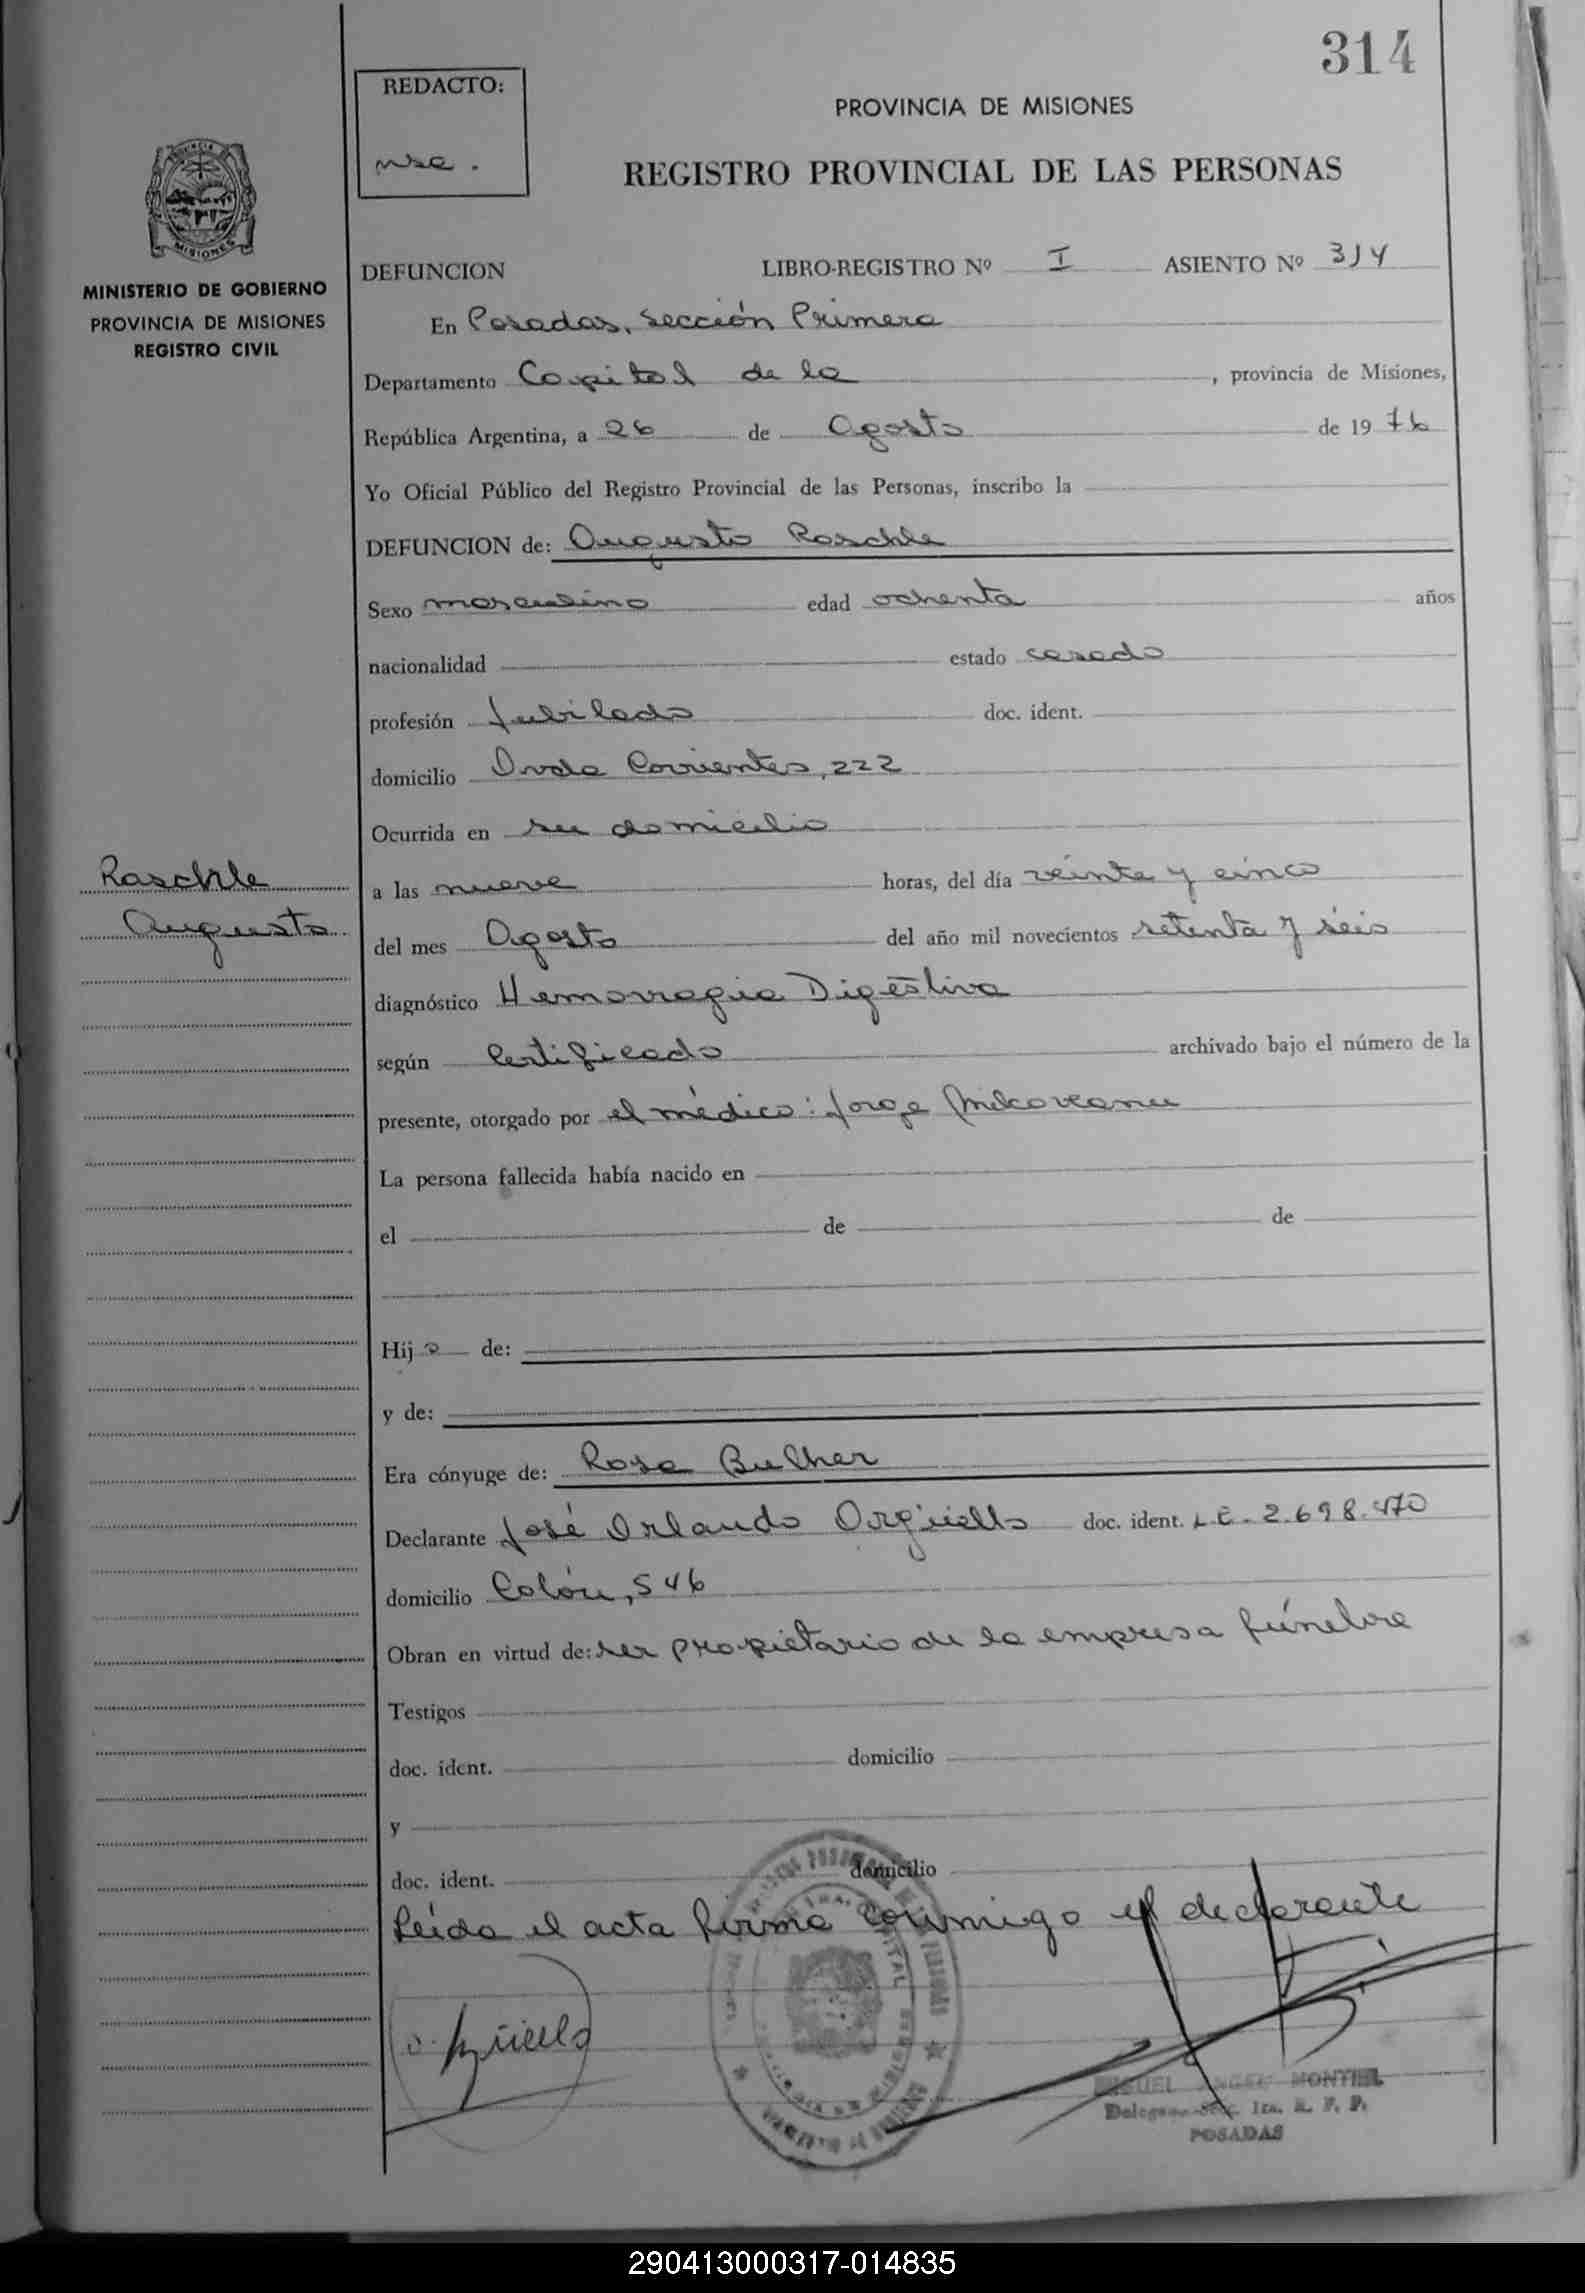 314
REDACTO:
PROVINCIA DE MISIONES
REGISTRO PROVINCIAL DE LAS PERSONAS
MISIONES
MINISTERIO DE GOBIERNO
PROVINCIA DE MISIONES
REGISTRO CIVIL
DEFUNCION LIBRO-REGISTRO Nº I ASIENTO Nº 314
En Posadas, sección Primera
Departamento Capital de la , provincia de Misiones,
República Argentina, a 26 de Agosto de 1976
Yo Oficial Público del Registro Provincial de las Personas, inscribo la
DEFUNCION de: Augusto Raschle
Sexo masculino edad ochenta años
nacionalidad estado casado
profesión Jubilado doc. ident.
domicilio Avda Corrientes, 222
Ocurrida en su domicilio
Raschle
Augusto
a las nueve horas, del día veinte y cinco
del mes Agosto del año mil novecientos setenta y séis
diagnóstico Hemorragia Digestiva
según Certificado archivado bajo el número de la
presente, otorgado por el médico: Jorge
La persona fallecida había nacido en
el de de
Hijo de:
y de:
Era cónyuge de: Rosa Bulher
Declarante José Orlando Argüello doc. ident. L.E. 2.698.470
domicilio Colón, 546
Obran en virtud de: ser propietario de la empresa fúnebre
Testigos
doc. ident. domicilio
y
doc. ident. domicilio
Leída el acta firma conmigo el declarante
MIGUEL ANGEL MONTIEL
Delegado Sec. 1ra. R. P. P.
POSADAS
290413000317-014835